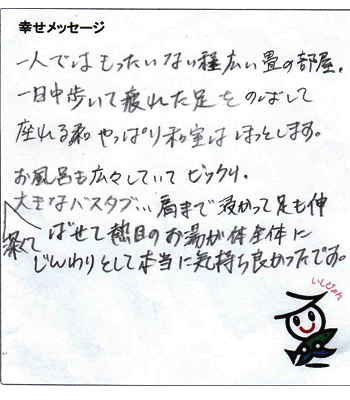 幸せメッセージ
一人ではもったいない程広い畳の部屋。
一日中歩いて疲れた足をのばして
座れる和 やっぱり和室はほっとします。
お風呂も広々していてビックリ。
大きなバスタブ… 肩まで浸かって足も伸
深くて
ばせて熱目のお湯が体全体に
じんわりとして本当に気持ち良かったです。
いしじょん